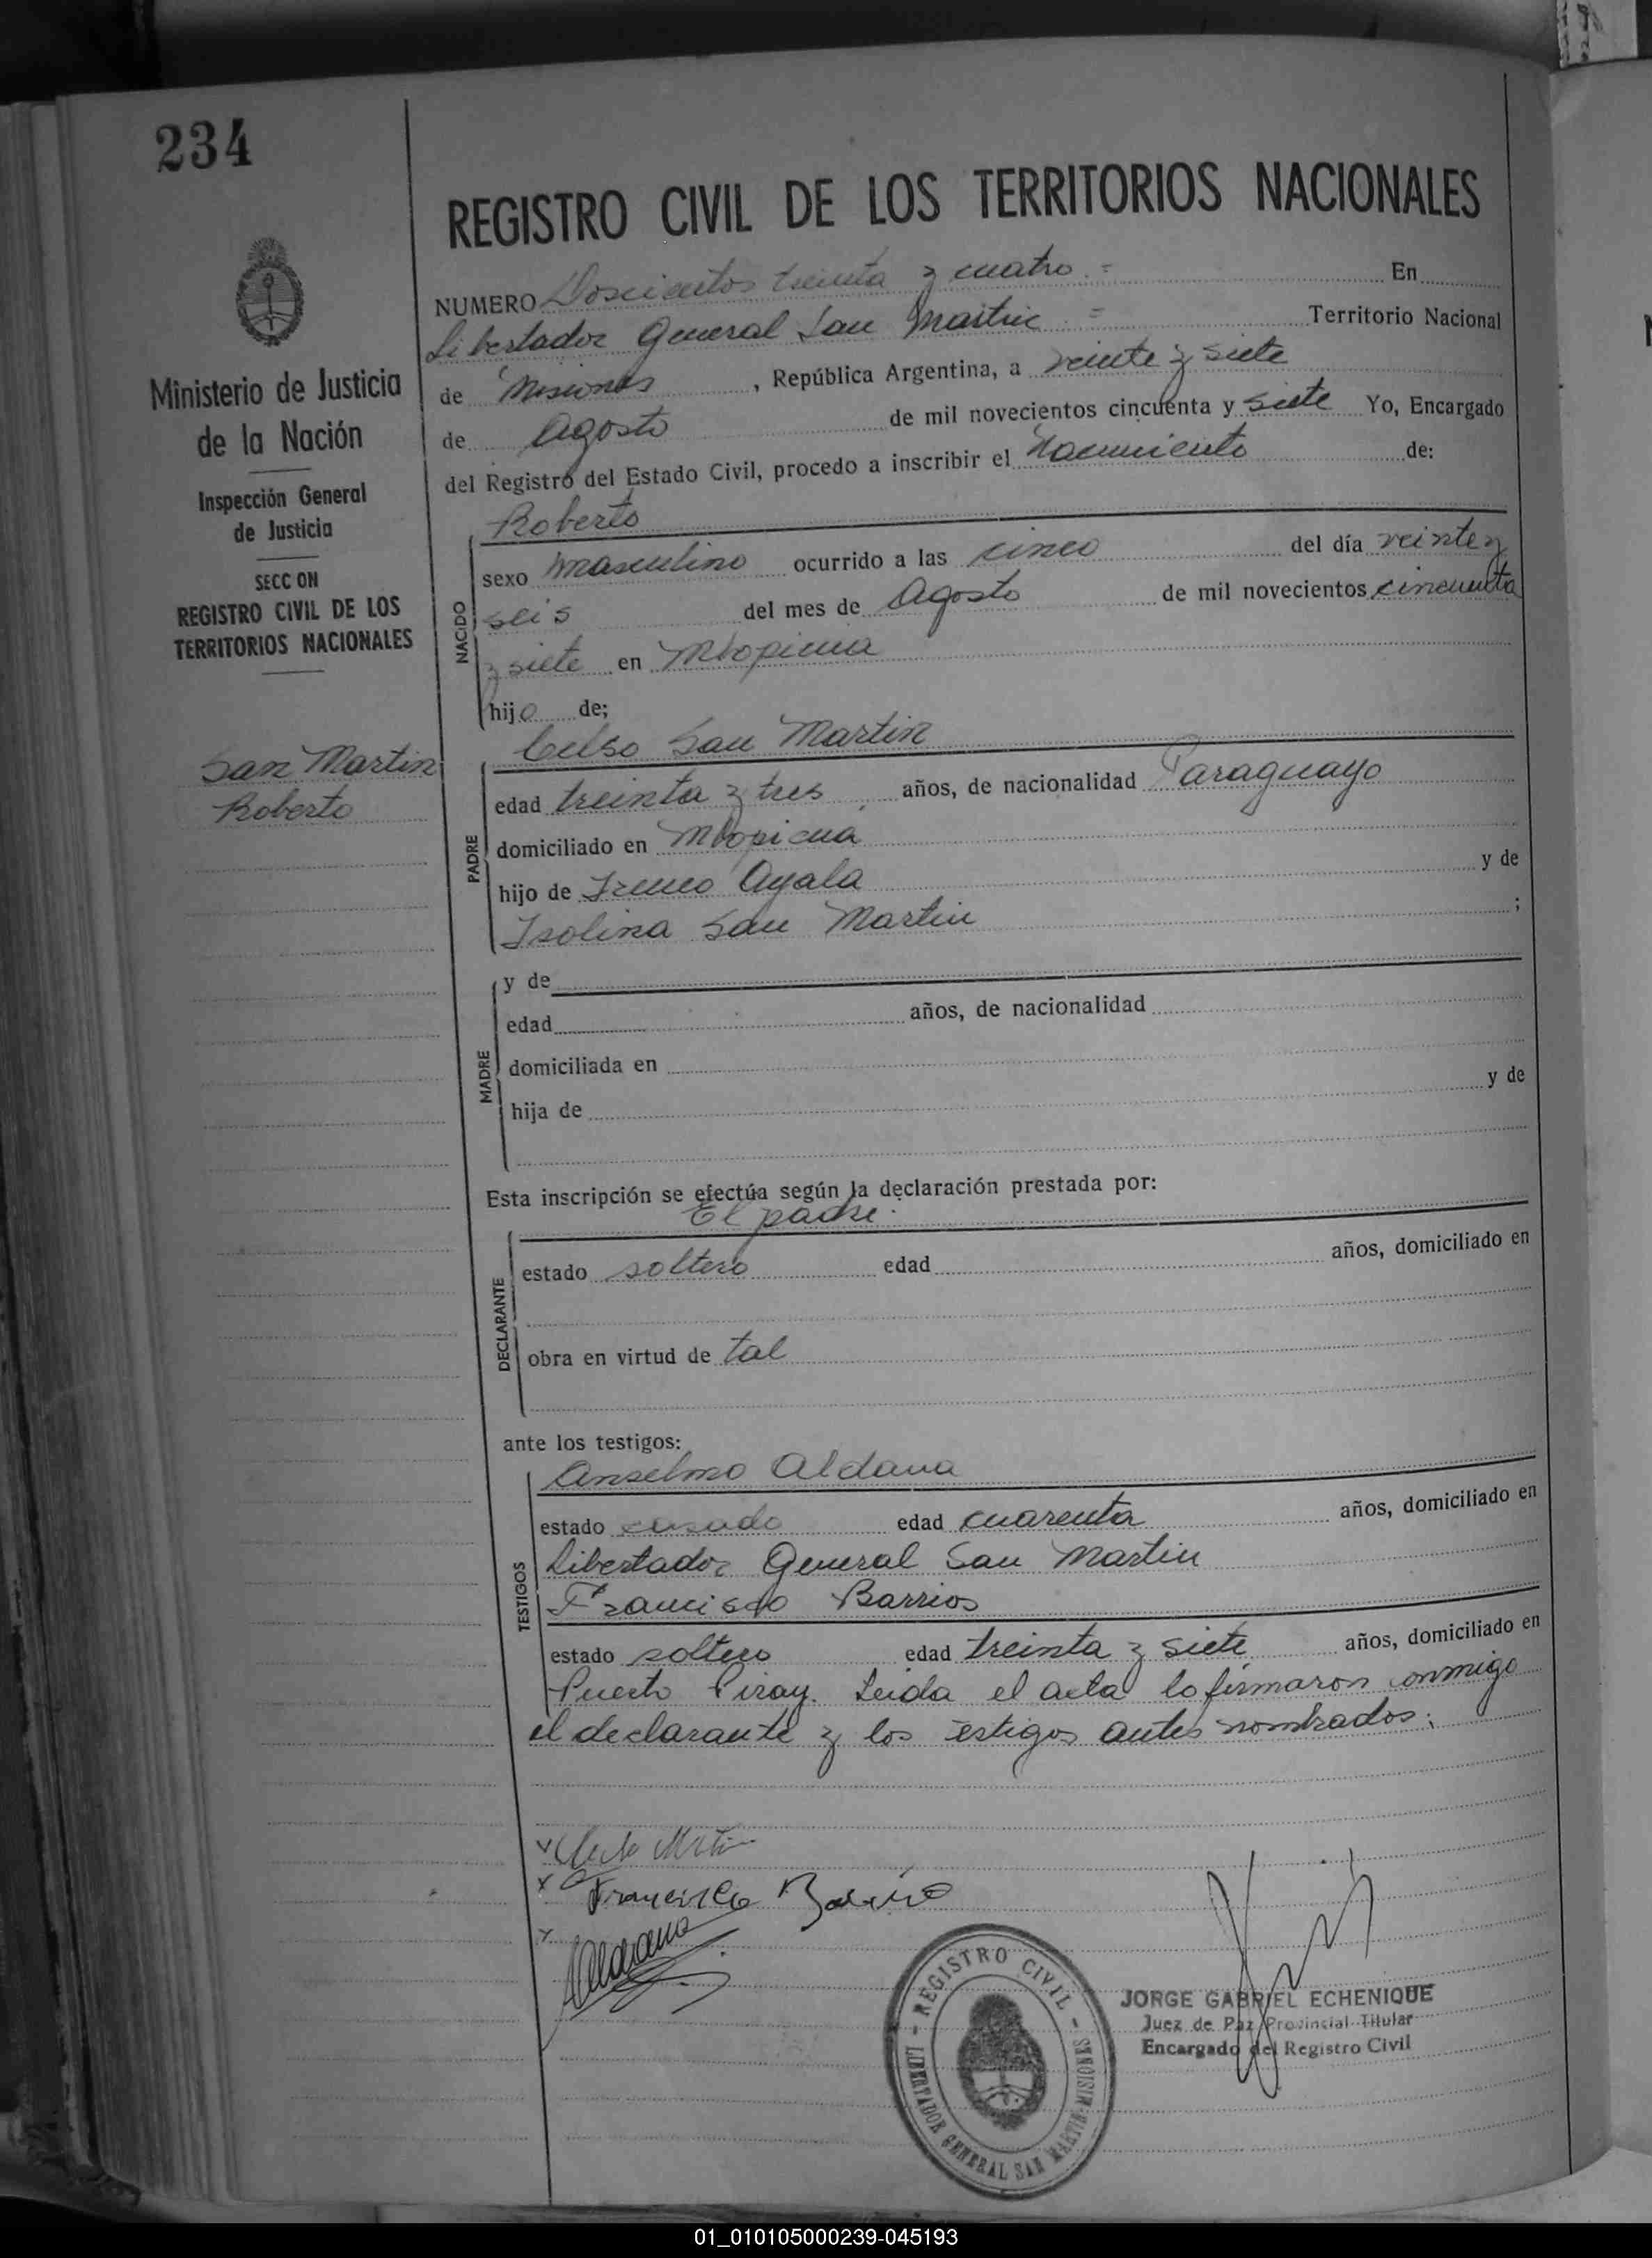 234
REGISTRO CIVIL DE LOS TERRITORIOS NACIONALES
Ministerio de Justicia
de la Nación
Inspección General
de Justicia
SECC ON
REGISTRO CIVIL DE LOS
TERRITORIOS NACIONALES
San Martin
Roberto
NUMERO Doscientos treinta y cuatro = En
Libertador General San Martin = Territorio Nacional
de Misiones, República Argentina, a veinte y siete
de Agosto de mil novecientos cincuenta y siete Yo, Encargado
del Registro del Estado Civil, procedo a inscribir el Nacimiento de:
Roberto
NACIDO
sexo masculino ocurrido a las cinco del día veinte y
seis del mes de Agosto de mil novecientos cincuenta
y siete en Mbopicua
hijo de;
Celso San Martin
PADRE
edad treinta y tres años, de nacionalidad Paraguayo
domiciliado en Mbopicua
hijo de Ireneo Ayala y de
Isolina San Martin ;
MADRE
y de
edad años, de nacionalidad
domiciliada en
hija de y de
Esta inscripción se efectúa según la declaración prestada por:
El padre.
DECLARANTE
estado soltero edad años, domiciliado en
obra en virtud de tal
ante los testigos:
Anselmo Aldana
TESTIGOS
estado casado edad cuarenta años, domiciliado en
Libertador General San Martin
Francisco Barrios
estado soltero edad treinta y siete años, domiciliado en
Puerto Piray. Leida el acta lo firmaron conmigo
el declarante y los testigos antes nombrados.
Francisco
Aldana
REGISTRO CIVIL
LIBERTADOR GENERAL SAN MARTIN-MISIONES
JORGE GABRIEL ECHENIQUE
Juez de Paz Provincial Titular
Encargado del Registro Civil
01_010105000239-045193